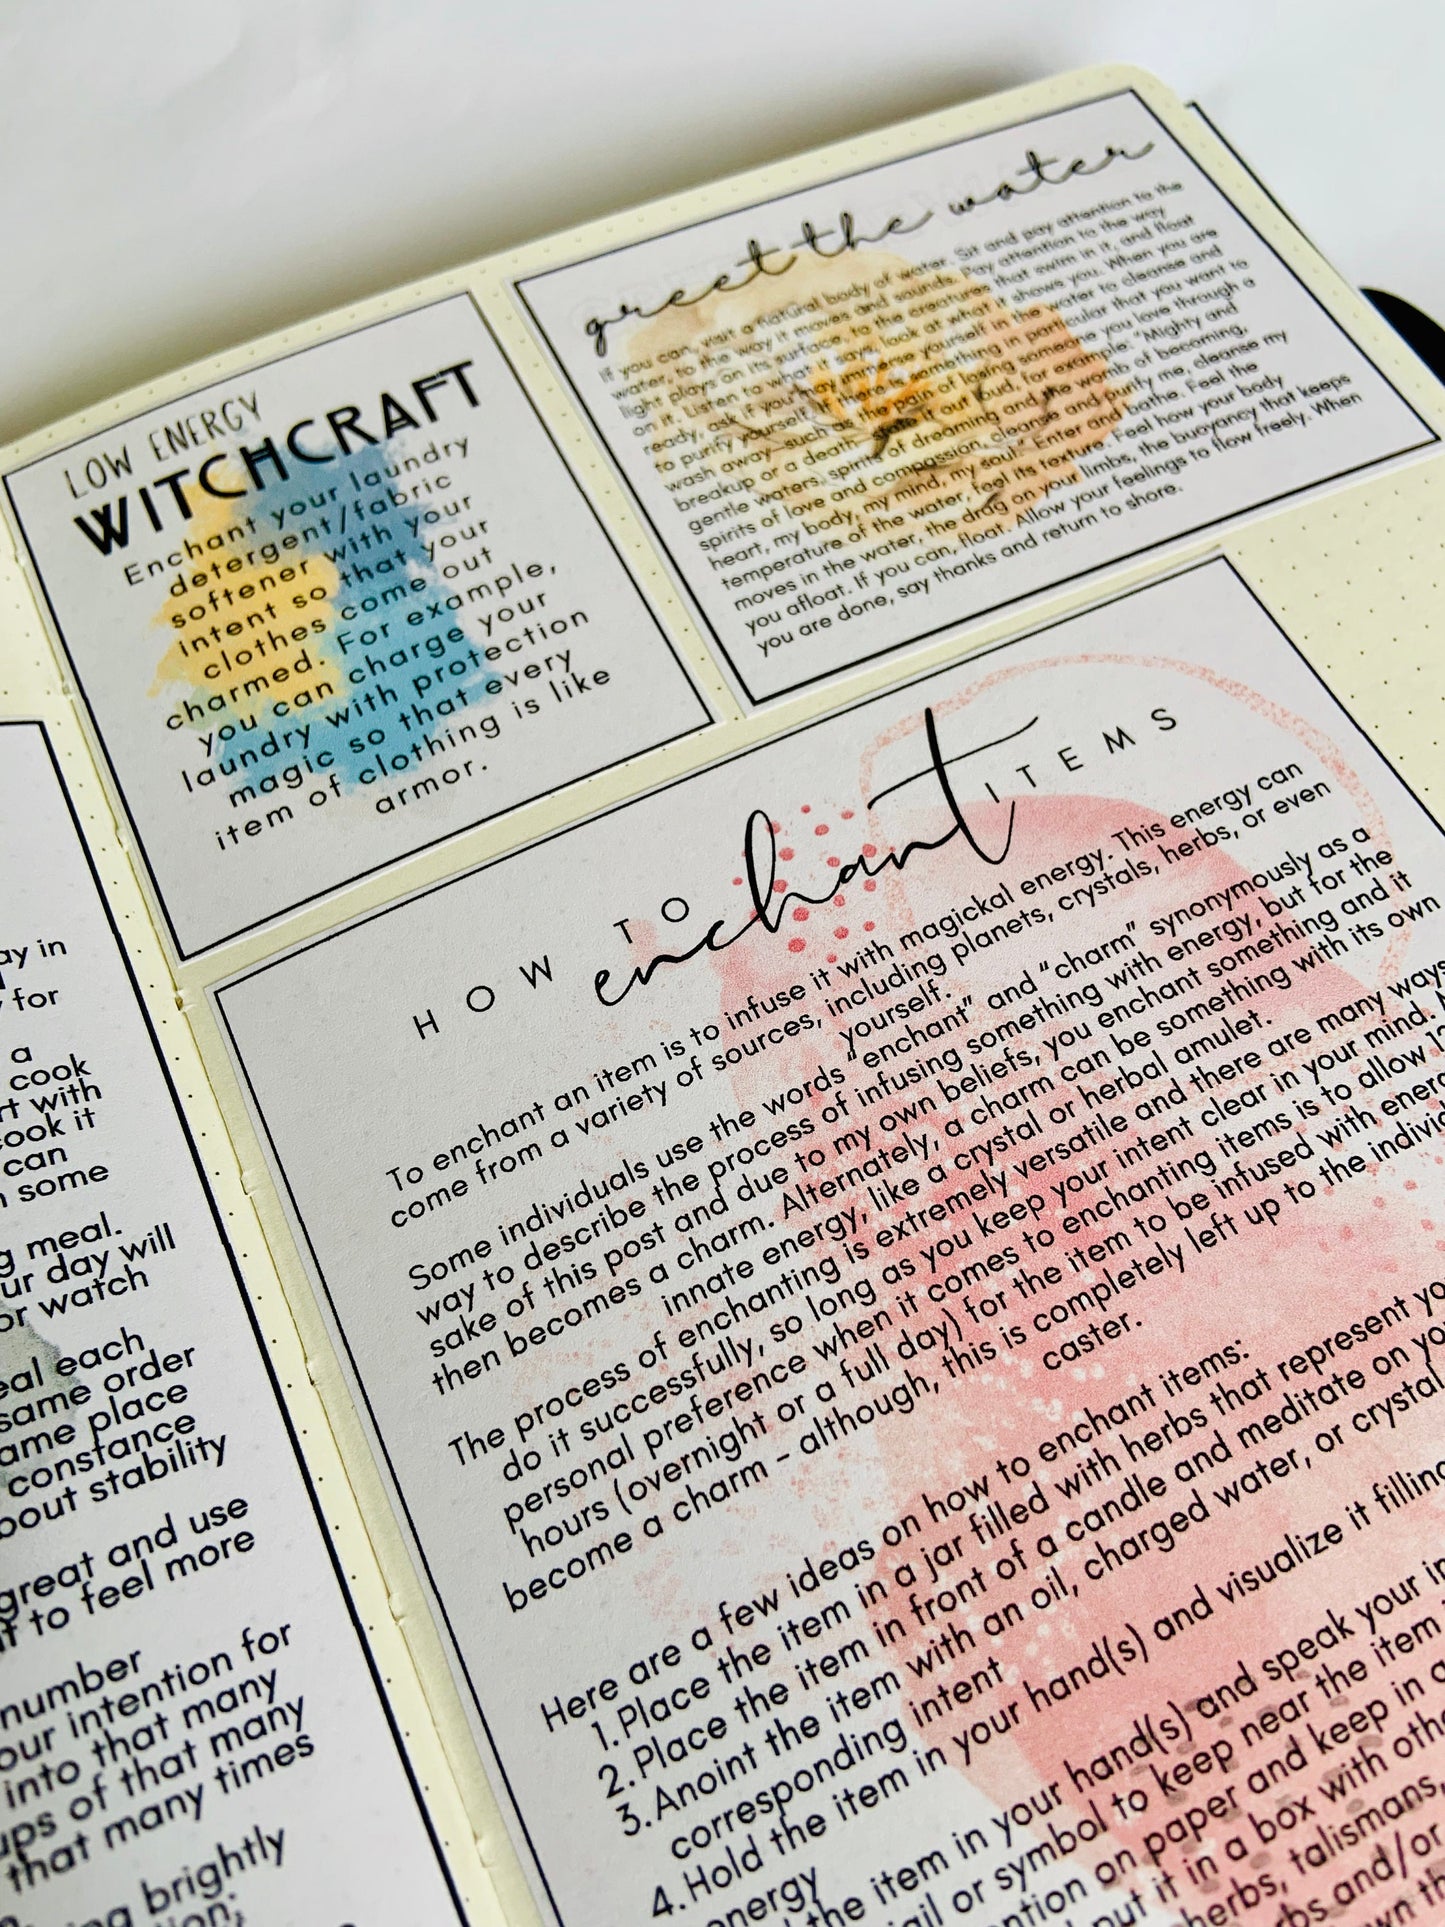 LOW ENERGY
WITCHCRAFT
Enchant your laundry
detergent/fabric
softener with your
intent so that your
clothes come out
charmed. For example,
you can charge your
laundry with protection
magic so that every
item of clothing is like
armor.
greet the water
If you can, visit a natural body of water. Sit and pay attention to the
water, to the way it moves and sounds. Pay attention to the way
light plays on its surface, to the creatures that swim in it, and float
on it. Listen to what it says, look at what it shows you. When you are
ready, ask if you may immerse yourself in the water to cleanse and
to purify yourself. If there is something in particular that you want to
wash away - such as the pain of losing someone you love through a
breakup or a death - state it out loud, for example: "Mighty and
gentle waters, spirits of dreaming and the womb of becoming,
spirits of love and compassion, cleanse and purify me, cleanse my
heart, my body, my mind, my soul." Enter and bathe. Feel the
temperature of the water, feel its texture. Feel how your body
moves in the water, the drag on your limbs, the buoyancy that keeps
you afloat. If you can, float. Allow your feelings to flow freely. When
you are done, say thanks and return to shore.
HOW TO enchant ITEMS
To enchant an item is to infuse it with magickal energy. This energy can
come from a variety of sources, including planets, crystals, herbs, or even
yourself.
Some individuals use the words "enchant" and "charm" synonymously as a
way to describe the process of infusing something with energy, but for the
sake of this post and due to my own beliefs, you enchant something and it
then becomes a charm. Alternately, a charm can be something with its own
innate energy, like a crystal or herbal amulet.
The process of enchanting is extremely versatile and there are many ways
do it successfully, so long as you keep your intent clear in your mind.
personal preference when it comes to enchanting items is to allow 12
hours (overnight or a full day) for the item to be infused with
become a charm - although, this is completely left up to the
caster.
Here are a few ideas on how to enchant items:
1. Place the item in a jar filled with herbs that represent
2. Place the item in front of a candle and meditate on
3. Anoint the item with an oil, charged water, or crystal
corresponding intent
4. Hold the item in your hand(s) and visualize it filling
energy
the item in your hand(s) and speak your
or symbol to keep near the item
on paper and keep in a
put it in a box with
herbs, talismans,
and/or
ay in
for
a
cook
with
cook it
can
some
meal.
day will
or watch
each,
same order
place
constance
stability
great and use
to feel more
number
intention for
into that many
of that many
that many times
brightly